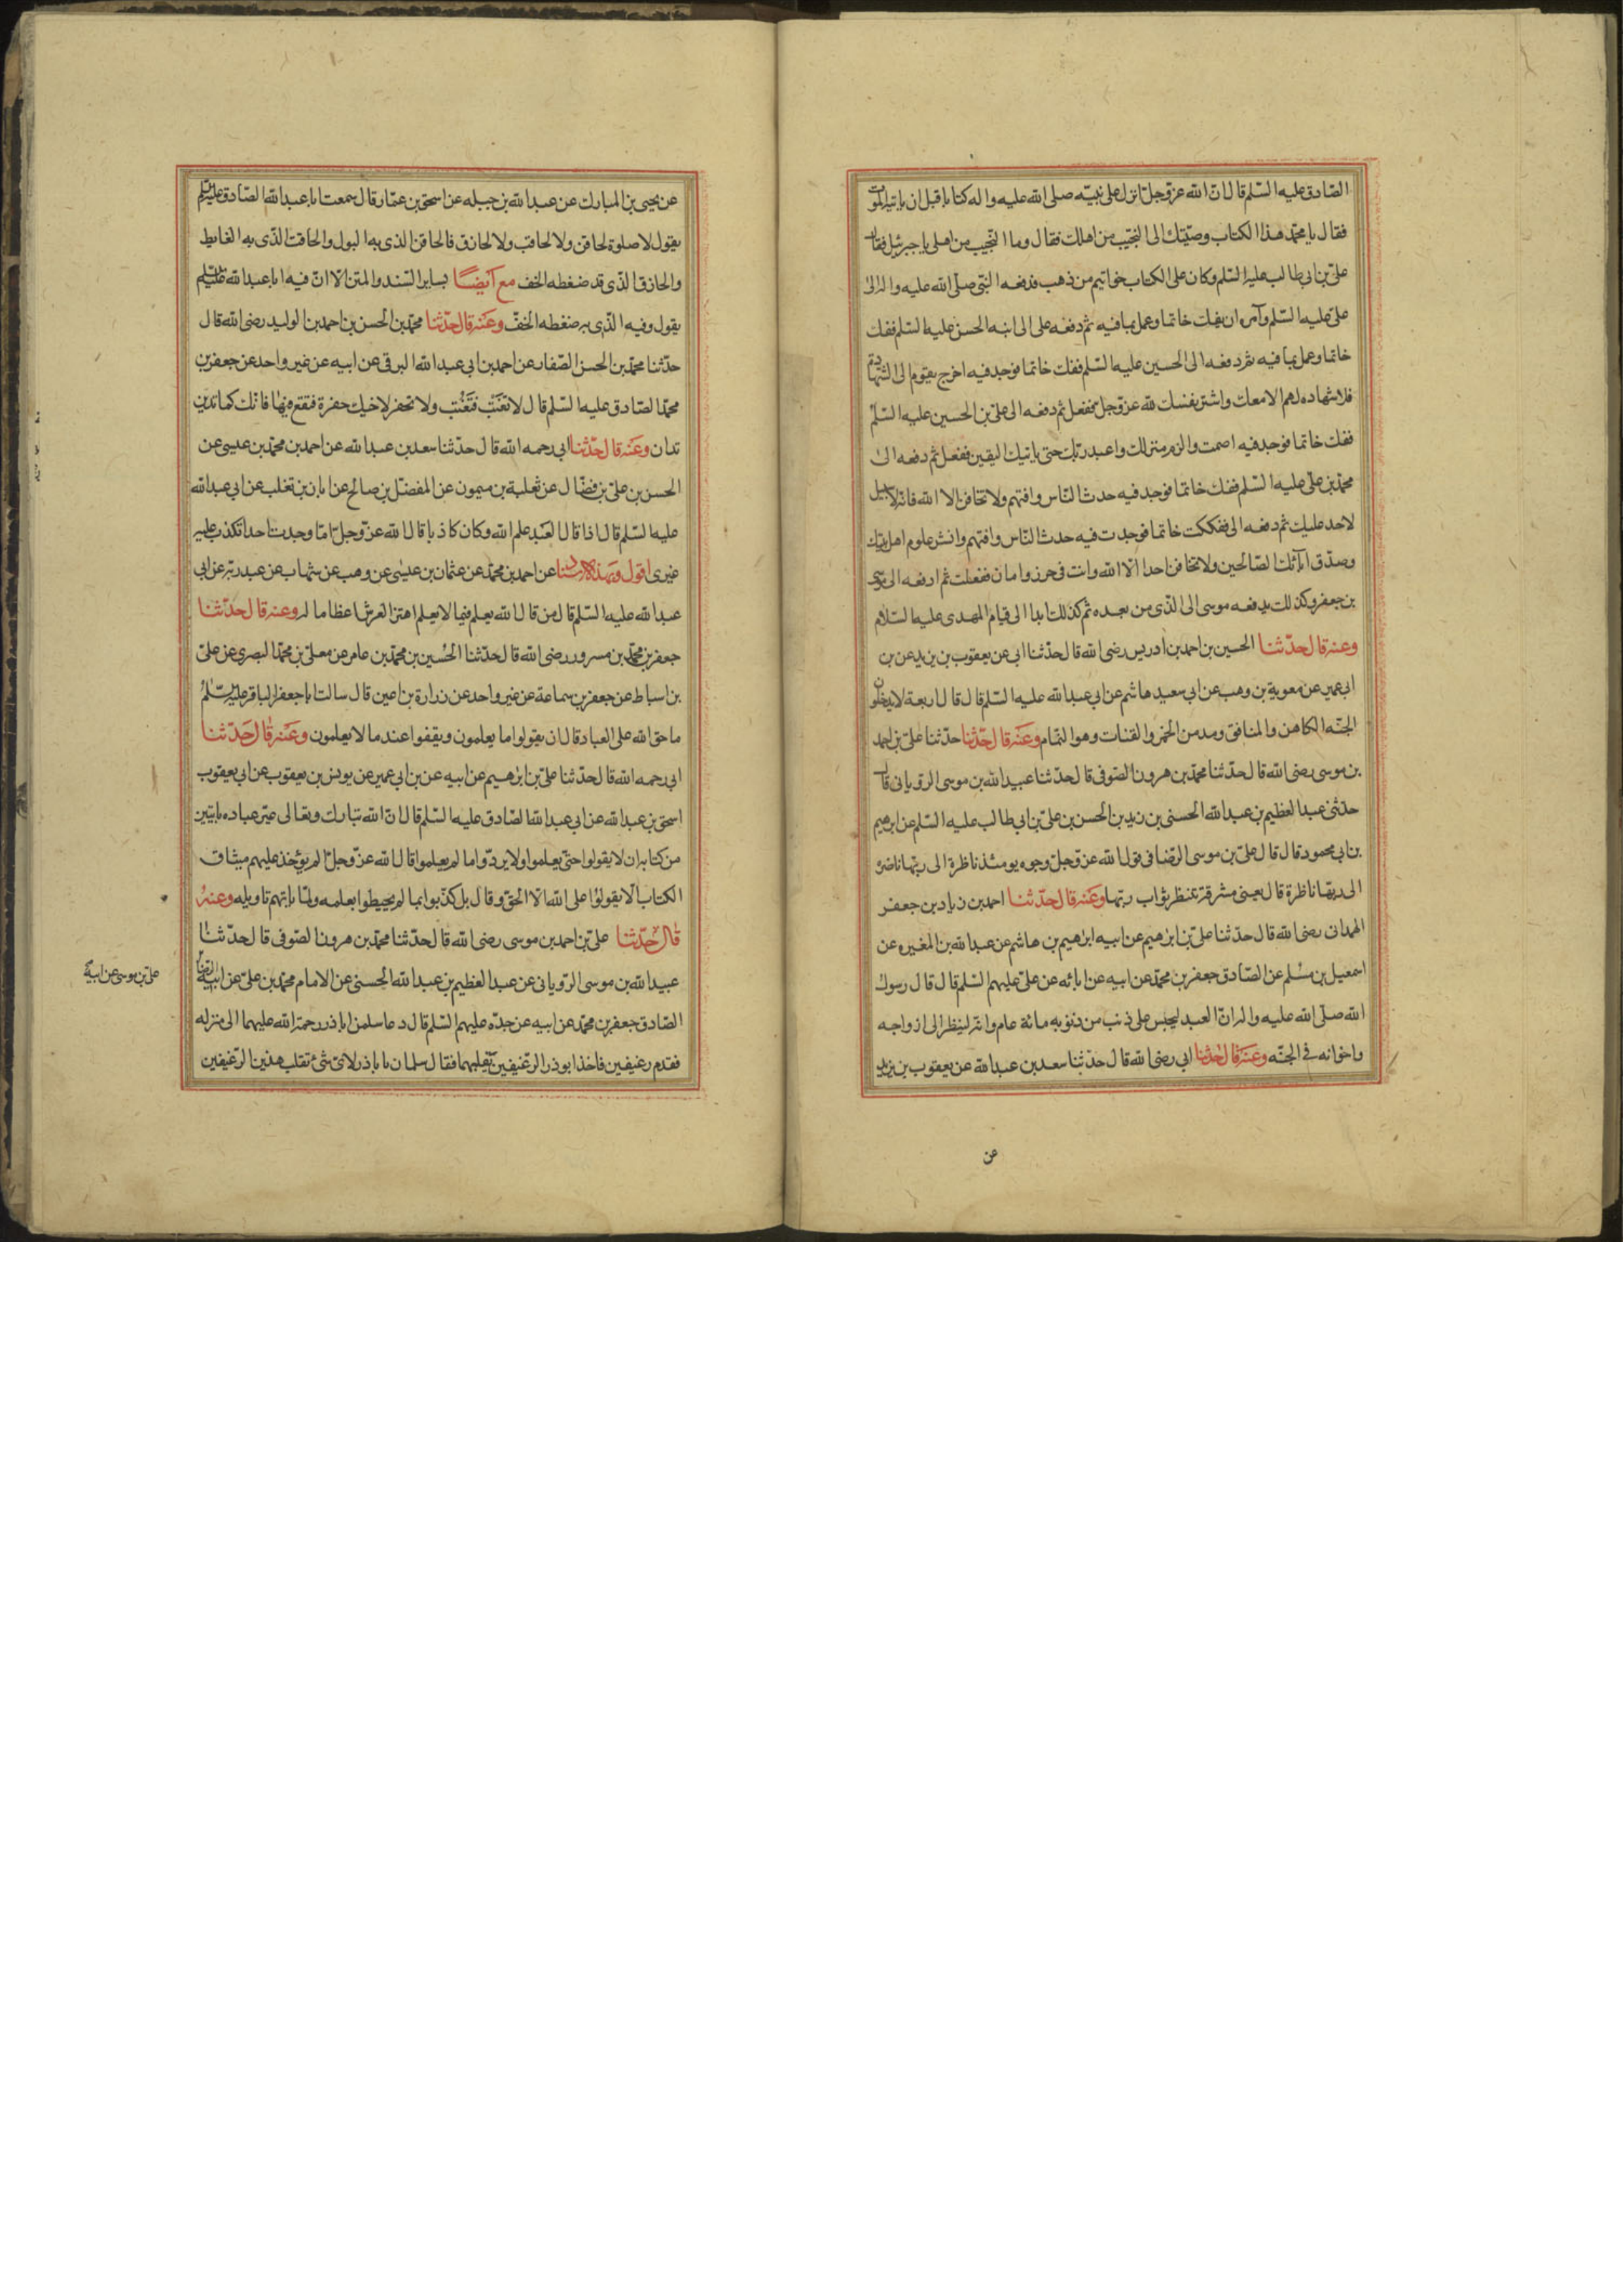 الصّادق عليه السّلم قال انّ الله عزّوجلّ انزل على نبيّه صلى الله عليه واله كتابا قبل ان ياتيه الموت
فقال يا محمّد هذا الكتاب وصيّتك الى النجيب من اهلك فقال وما النّجيب من اهلى يا جبرئيل فقال
علىّ بن ابى طالب عليه السّلم وكان على الكتاب خواتيم من ذهب فدفعه النّبى صلّى الله عليه واله الى
علىّ عليه السّلم وآمره ان يفك خاتما وعمل بما فيه ثم دفعه على الى ابنه الحسن عليه السّلم ففك
خاتما وعمل بما فيه ثم دفعه الى الحسين عليه السّلم ففك خاتما فوجد فيه اخرج بقوم الى الشّهادة
فلا شهاده لهم الا معك واشتر نفسك لله عزّوجلّ ففعل ثم دفعه الى علىّ بن الحسين عليه السّلم
ففك خاتما فوجد فيه اصمت والزم منزلك واعبد ربّك حتى ياتيك اليقين ففعل ثم دفعه الى
محمّد بن علىّ عليه السّلم ففك خاتما فوجد فيه حدث النّاس وافتهم ولا تخافن الا الله فانه لا سبيل
لاحد عليك ثم دفعه الى ففككت خاتما فوجدت فيه حدث النّاس وافتهم وانشر علوم اهل بيتك
وصدّق آبائك الصّالحين ولا تخافن احدا الّا الله وانت فى حرز وامان ففعلت ثم ادفعه الى موسى
بن جعفر وكذلك يدفعه موسى الى الّذى من بعده ثم كذلك ابدا الى قيام المهدى عليه السّلام
وعنه قال حدّثنا الحسين بن احمد بن ادريس رضى الله قال حدّثنا ابى عن يعقوب بن يزيد عن بن
ابى عمير عن معوية بن وهب عن ابى سعيد هاشم عن ابى عبد الله عليه السّلم قال قال اربعة لا يدخلون
الجنّه الكاهن والمنافق ومدمن الخمر والقتات وهو النّمام وعنه قال حدّثنا حدّثنا علىّ بن احمد
بن موسى رضى الله قال حدّثنا محمّد بن هرون الصّوفى قال حدّثنا عبيد الله بن موسى الرّويانى قال
حدّثنى عبد العظيم بن عبد الله الحسنى بن زيد بن الحسن بن علىّ بن ابى طالب عليه السّلم عن ابرهيم
بن ابى محمود قال قال علىّ بن موسى الرّضا فى قول الله عزّوجلّ وجوه يومئذ ناظرة الى ربّها ناضرة
الى ربّها ناظرة قال يعنى مشرقة تنتظر ثواب ربّها وعنه قال حدّثنا احمد بن زياد بن جعفر
الهمدانى رضى الله قال حدّثنا علىّ بن ابرهيم عن ابيه ابرهيم بن هاشم عن عبد الله بن المغيره عن
اسمعيل بن مسلم عن الصّادق جعفر بن محمّد عن ابيه عن ابائه عن علىّ عليهم السّلم قال قال رسول
الله صلّى الله عليه واله انّ العبد ليحبس على ذنب من ذنوبه مائة عام وانه لينظر الى ازواجه
واخوانه فى الجنّه وعنه قال حدّثنا ابى رضى الله قال حدّثنا سعد بن عبد الله عن يعقوب بن يزيد
عن
عن يحيى بن المبارك عن عبد الله بن جبله عن اسحق بن عمّار قال سمعت ابا عبد الله الصّادق عليه السّلم
يقول لا صلوة لحاقن ولا لحاقب ولا لحازق فالحاقن الذى به البول والحاقب الّذى به الغايط
والحازق الّذى قد ضغطه الخف مع ايضا بساير السّند والمتن الّا انّ فيه ابا عبد الله عليه السّلم
يقول وفيه الّذى به ضغطه الخفّ وعنه قال حدّثنا محمّد بن الحسن بن احمد بن الوليد رضى الله قال
حدّثنا محمّد بن الحسن الصّفار عن احمد بن ابى عبد الله البرقى عن ابيه عن غير واحد عن جعفر بن
محمّد الصّادق عليه السّلم قال لا تغتب فتغتب ولا تحفر لاخيك حفرة فتقع فيها فانّك كما تدين
تدان وعنه قال حدّثنا ابى رحمه الله قال حدّثنا سعد بن عبد الله عن احمد بن محمّد بن عيسى عن
الحسن بن علىّ بن فضّال عن ثعلبة بن ميمون عن المفضّل بن صالح عن ابان بن تغلب عن ابى عبد الله
عليه السّلم قال اذا قال العبد علم الله وكان كاذبا قال الله عزّوجلّ امّا وجدت احدا تكذب عليه
غيرى اقول وبهذا الاسناد عن احمد بن محمّد عن عثمان بن عيسى عن وهب عن شهاب عن عبد ربّه عن ابى
عبد الله عليه السّلم قال من قال الله يعلم فيما لا يعلم اهتز العرش اعظاما له وعنه قال حدّثنا
جعفر بن محمّد بن مسرور رضى الله قال حدّثنا الحسين بن محمّد بن عامر عن معلى بن محمّد البصرى عن علىّ
بن اسباط عن جعفر بن سماعة عن غير واحد عن زرارة بن اعين قال سالت ابا جعفر الباقر عليه السّلم
ما حق الله على العباد قال ان يقولوا ما يعلمون ويقفوا عند ما لا يعلمون وعنه قال حدّثنا
ابى رحمه الله قال حدّثنا علىّ بن ابرهيم عن ابيه عن بن ابى عمير عن يونس بن يعقوب عن ابى يعقوب
اسحق بن عبد الله عن ابى عبد الله الصّادق عليه السّلم قال انّ الله تبارك وتعالى عيّر عباده بايتين
من كتابه ان لا يقولوا حتىّ يعلموا ولا يردّوا ما لم يعلموا قال الله عزّوجلّ الم يؤخذ عليهم ميثاق
الكتاب ألّا يقولوا على الله الا الحقّ وقال بل كذّبوا بما لم يحيطوا بعلمه ولمّا ياتهم تاويله وعنه
قال حدّثنا علىّ بن احمد بن موسى رضى الله قال حدّثنا محمّد بن هرون الصّوفى قال حدّثنا
عبيد الله بن موسى الرّويانى عن عبد العظيم بن عبد الله الحسنى عن الامام محمّد بن علىّ عن ابيه الرّضا
علىّ بن موسى عن ابيه
الصّادق جعفر بن محمّد عن ابيه عن جدّه عليهم السّلم قال دعا سلمن اباذر رحمة الله عليهما الى منزله
فقدم رغيفين فاخذ ابوذر الرّغيفين يقلبهما فقال سلمان يا باذر لاىّ شئ تقلب هذين الرّغيفين